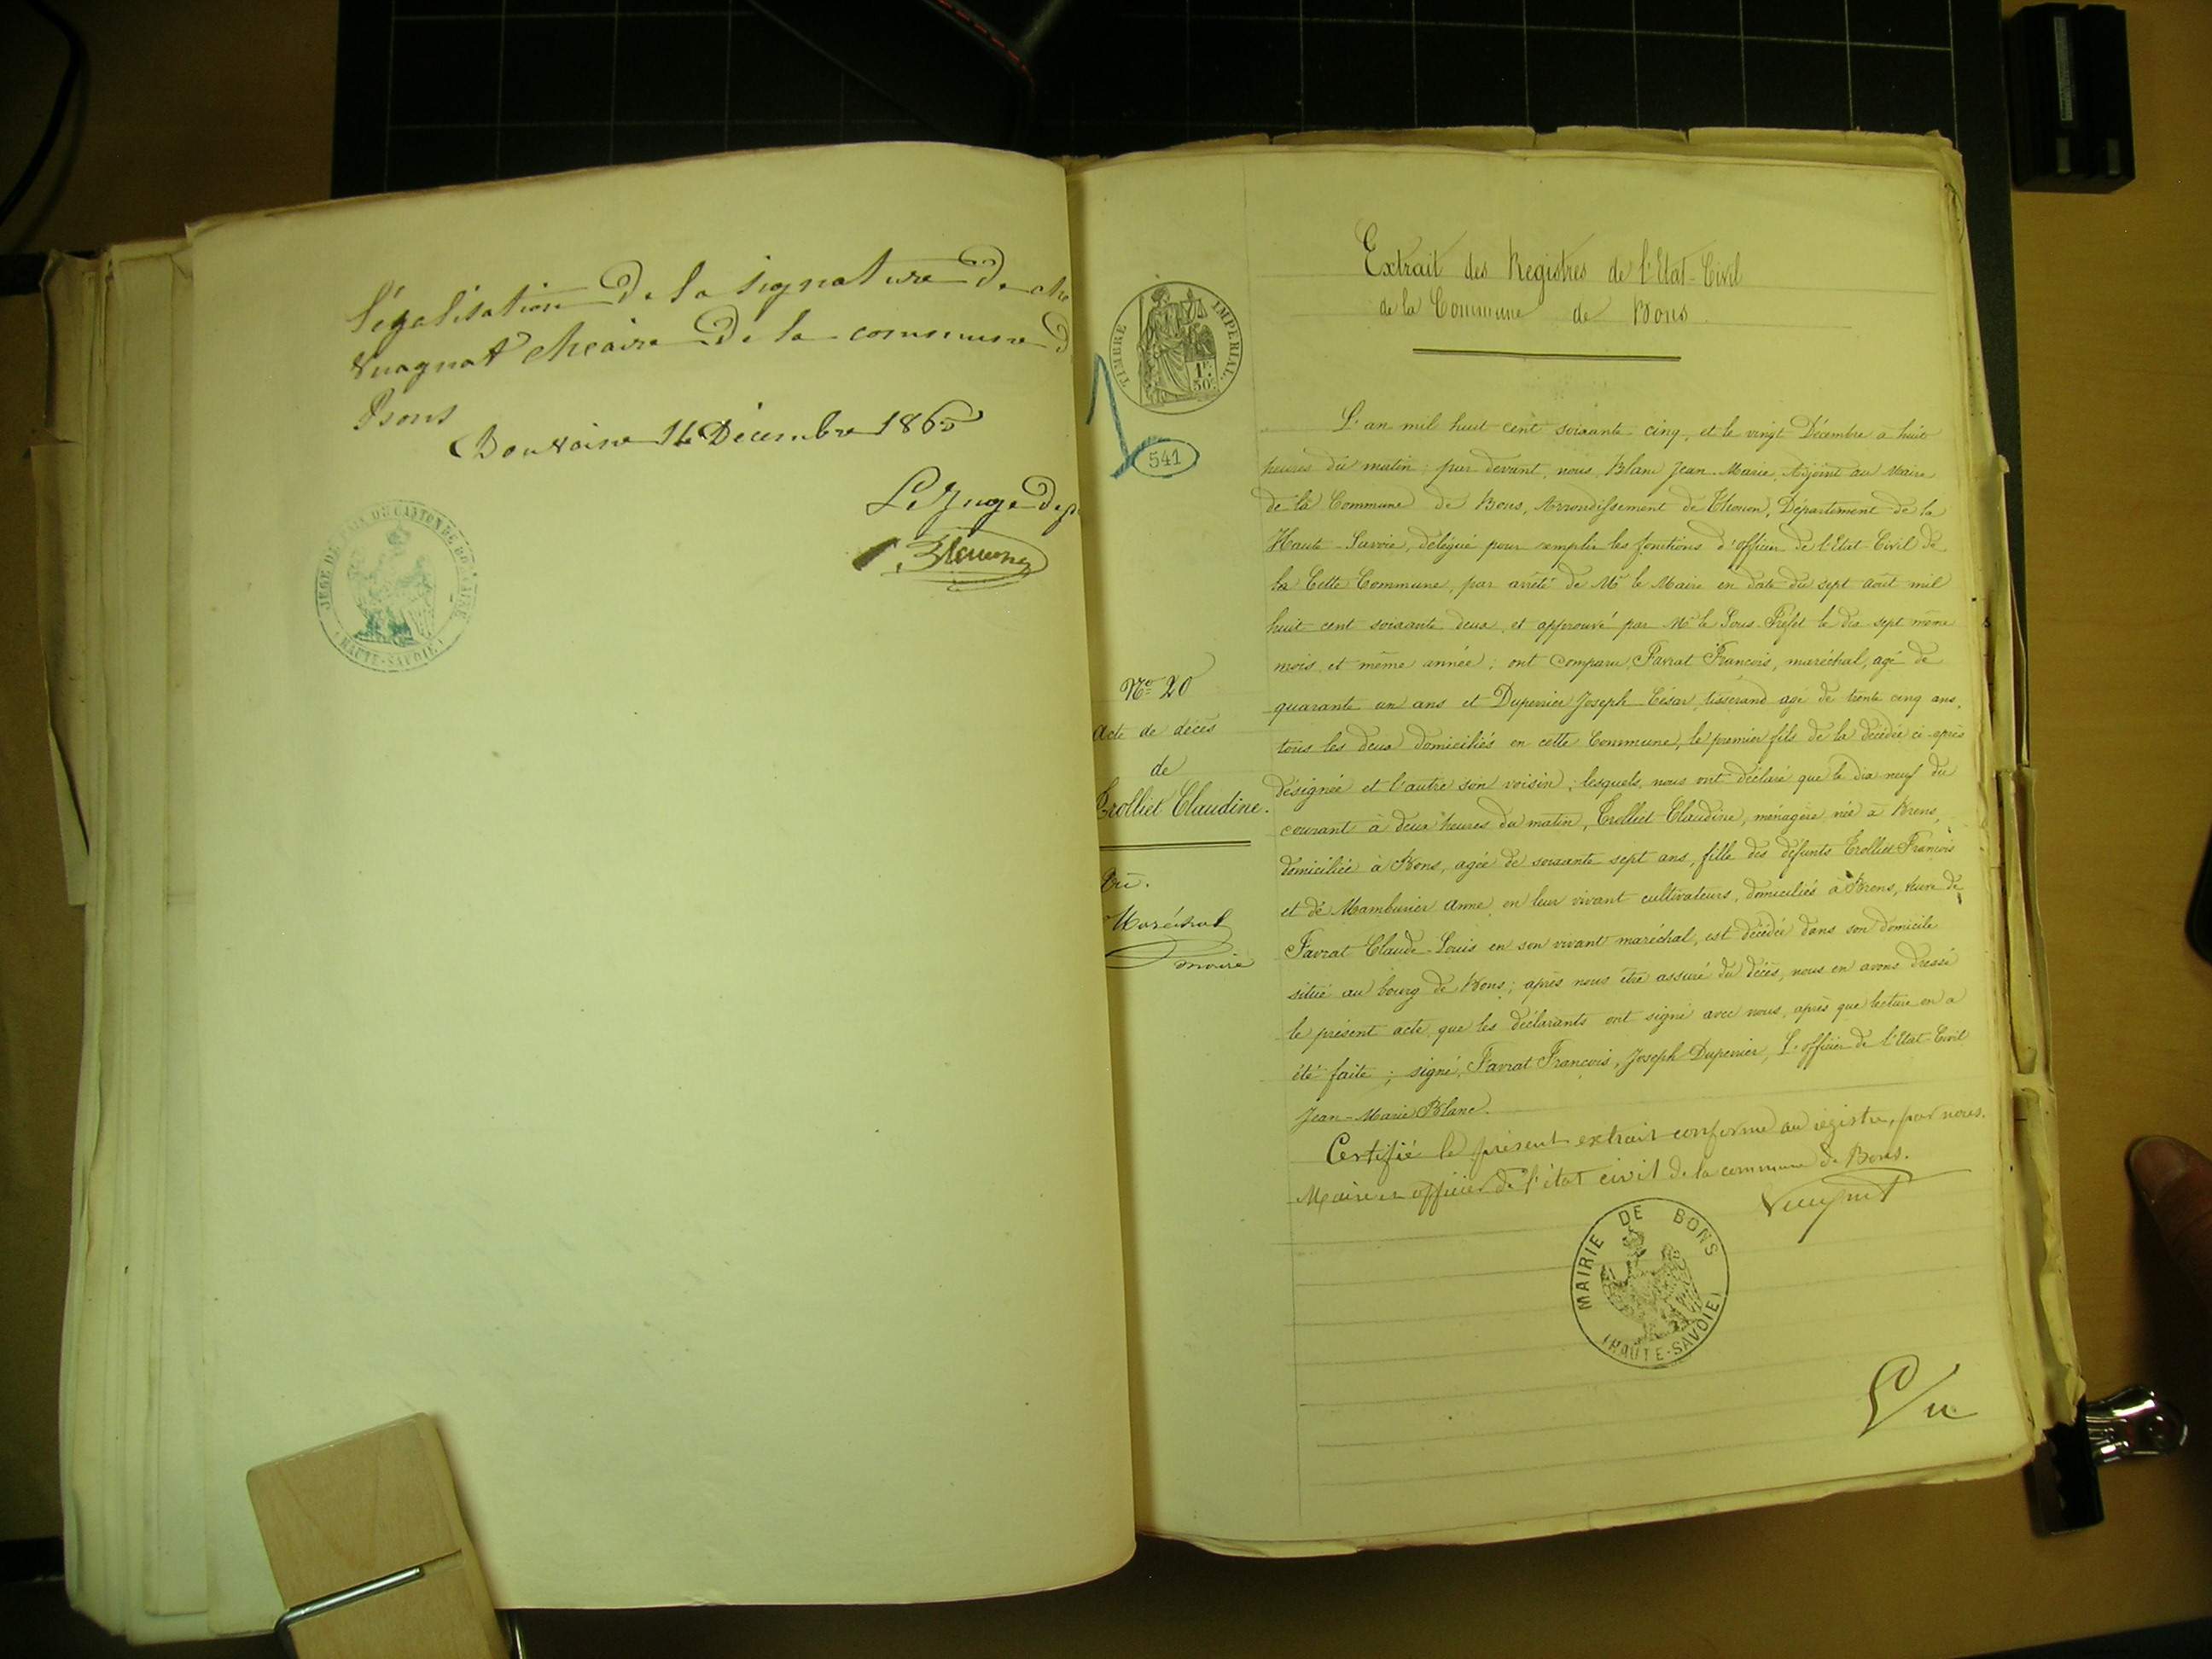 légalisation de la signature de
Vuagnat Maire de la commune d
Bons
Douvaine 16 Décembre 1865
Le Juge de p
JUGE DE PAIX DU CANTON DE DOUVAINE
(HAUTE-SAVOIE)
TIMBRE IMPERIAL.
1F. 50c.
541
No 20
Acte de décès
de
Trolliet Claudine.
Maréchal
Extrait des Registres de l'Etat-Civil
de la Commune de Bons
L'an mil huit cent soixante cinq, et le vingt Décembre à huit
heures du matin; par devant, nous, Blanc Jean-Marie, Adjoint au Maire
de la Commune de Bons, Arrondissement de Thonon, Département de la
Haute-Savoie, délégué pour remplir les fonctions d'officier de l'Etat-Civil de
la Cette Commune, par arrêté de Mr le Maire en date du sept août mil
huit cent soixante deux, et approuvé par Mr le Sous-Préfet le dix sept même
mois, et même année; ont comparu, Favrat François, maréchal, agé de
quarante un ans et Dupenier Joseph César, tisserand agé de trente cinq ans,
tous les deux domiciliés en cette Commune, le premier fils de la décédée ci-après
désignée et l'autre son voisin; lesquels, nous ont déclaré que le dix neuf du
courant à deux heures du matin, Trolliet Claudine, ménagère née à Brens,
domiciliée à Bons, agée de soixante sept ans, fille des défunts Trolliet François
et de Mambunier Anne, en leur vivant cultivateurs, domiciliés à Brens, veuve de
Favrat Claude-Louis en son vivant maréchal, est décédée dans son domicile
situé au bourg de Bons; après nous être assuré du décès, nous en avons dressé
le présent acte que les déclarants ont signé avec nous, après que lecture en a
été faite; signé, Favrat François, Joseph Dupenier, L'officier de l'Etat-Civil
Jean-Marie Blanc.
Certifié le présent extrait conforme au registre, par nous.
Maire et officier de l'état civil de la commune de Bons.
Vuagnat
MAIRIE DE BONS
(HAUTE-SAVOIE)
Vu